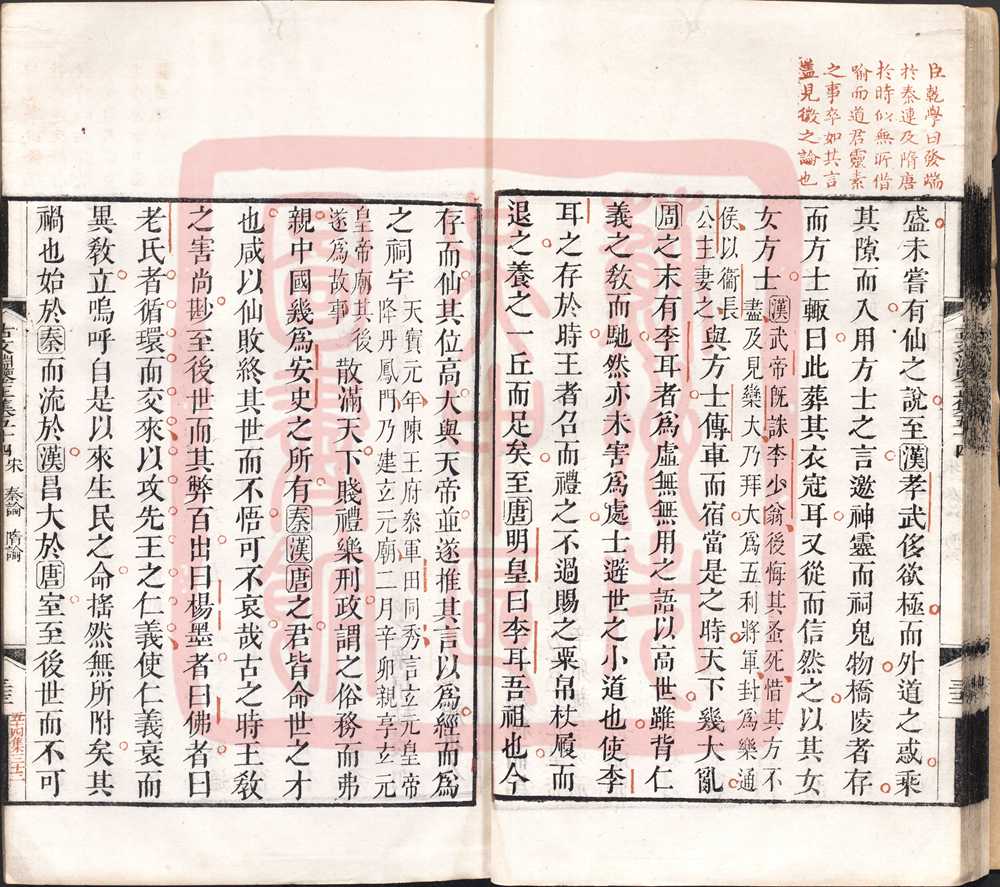 臣乾學曰發端
於秦連及隋唐
於時似無所借
喻而道君靈素
之事卒如其言
蓋見微之論也
盛未嘗有仙之說至漢孝武侈欲極而外道之惑乘
其隙而入用方士之言邀神靈而祠鬼物橋陵者存
而方士輙曰此葬其衣冠耳又從而信然之以其女
女方士漢武帝旣誅李少翁後悔其蚤死惜其方不
盡及見欒大乃拜大爲五利將軍封爲樂通
侯以衞長
公主妻之與方士傳車而宿當是之時天下幾大亂
周之末有李耳者爲虛無無用之語以高世雖背仁
義之敎而馳然亦未害爲處士遯世之小道也使李
耳之存於時王者召而禮之不過賜之粟帛杖履而
退之養之一丘而足矣至唐明皇曰李耳吾祖也今
存而仙其位高大與天帝並遂推其言以爲經而爲
之祠宇天寶元年陳王府叅軍田同秀言玄元皇帝
降丹鳳門乃建玄元廟二月辛卯親享玄元
皇帝廟其後
遂爲故事散滿天下賤禮樂刑政謂之俗務而弗
親中國幾爲安史之所有秦漢唐之君皆命世之才
也咸以仙敗終其世而不悟可不哀哉古之時王敎
之害尚尠至後世而其弊百出曰楊墨者曰佛者曰
老氏者循環而交來以攻先王之仁義使仁義衰而
異敎立嗚呼自是以來生民之命搖然無所附矣其
禍也始於秦而流於漢昌大於唐室至後世而不可
古文淵鑒正集卷五十四 宋 秦論 隋論
五十四集三十三